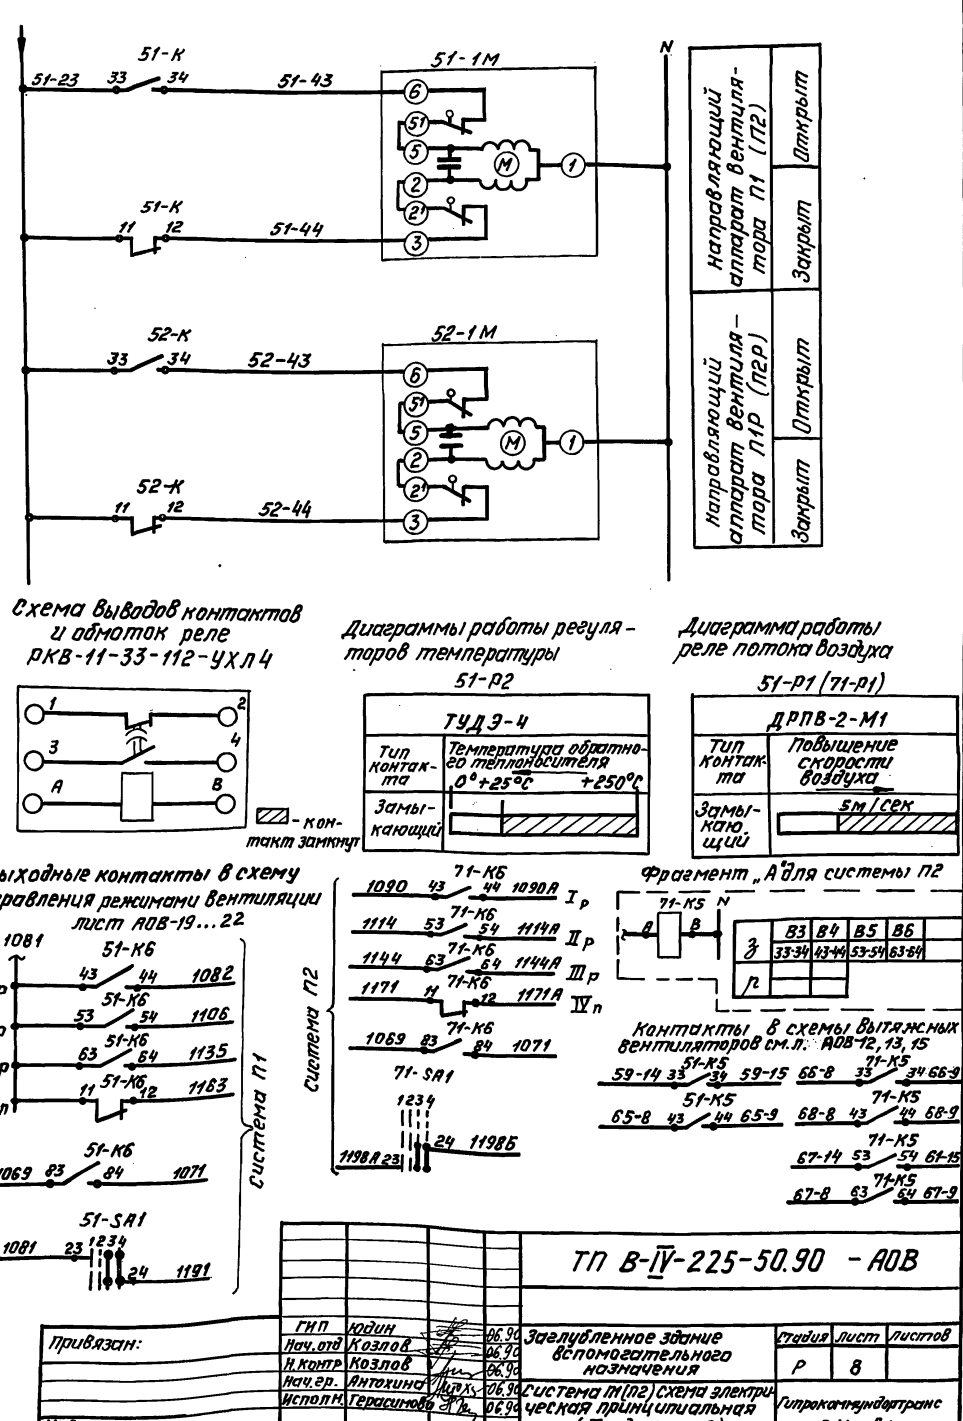 51-К
51-1М
N
51-23 33 34 51-43
6
5¹
5
М
1
2
2¹
3
51-К
11 12 51-44
52-К
52-1М
33 34 52-43
6
5¹
5
М
1
2
2¹
3
52-К
11 12 52-44
Направляющий
аппарат вентиля-
тора П1 (П2)
Закрыт
Открыт
Направляющий
аппарат вентиля-
тора П1Р (П2Р)
Закрыт
Открыт
Схема выводов контактов
и обмоток реле
РКВ-11-33-112-УХЛ4
1 2
3 4
А В
- кон-
такт замкнут
Диаграммы работы регуля-
торов температуры
51-Р2
ТУДЭ-4
Тип
контак-
та
Температура обратно-
го теплоносителя
0° +25°С +250°С
Замы-
кающий
Диаграмма работы
реле потока воздуха
51-Р1 (71-Р1)
ДРПВ-2-М1
Тип
контак-
та
Повышение
скорости
воздуха
5м/сек
Замы-
каю
щий
ыходные контакты в схему
равления режимами вентиляции
лист АОВ-19...22
1081
51-К6
43 44 1082
51-К6
53 54 1106
51-К6
63 64 1135
51-К6
11 12 1163
51-К6
1069 83 84 1071
51-SA1
1081 23 1 2 3 4
24 1191
Система П1
Система П2
71-К6
1090 43 44 1090А Iр
71-К6
1114 53 54 1114А IIр
71-К6
1144 63 64 1144А IIIр
71-К6
1171 11 12 1171А IVп
71-К6
1069 83 84 1071
71-SA1
1 2 3 4
1198А 23 24 1198Б
Фрагмент „А" для системы П2
71-К5 N
А В
З В3 В4 В5 В6
33-34 43-44 53-54 63-64
Р
Контакты в схемы вытяжных
вентиляторов см.л. АОВ-12, 13, 15
51-К5
59-14 33 34 59-15
51-К5
65-8 43 44 65-9
71-К5
66-8 33 34 66-9
71-К5
68-8 43 44 68-9
71-К5
67-14 53 54 61-15
71-К5
67-8 63 64 67-9
ТП В-IV-225-50.90 - АОВ
Привязан:
ГИП Юдин 06.90
Нач.отд Козлов 06.90
Н.контр Козлов 06.90
Нач.гр. Антохина 06.90
Исполн. Герасимова 06.90
Заглубленное здание
вспомогательного
назначения
Стадия Лист Листов
Р 8
Система П1(П2) Схема электри-
ческая принципиальная
Гипрокоммундортранс